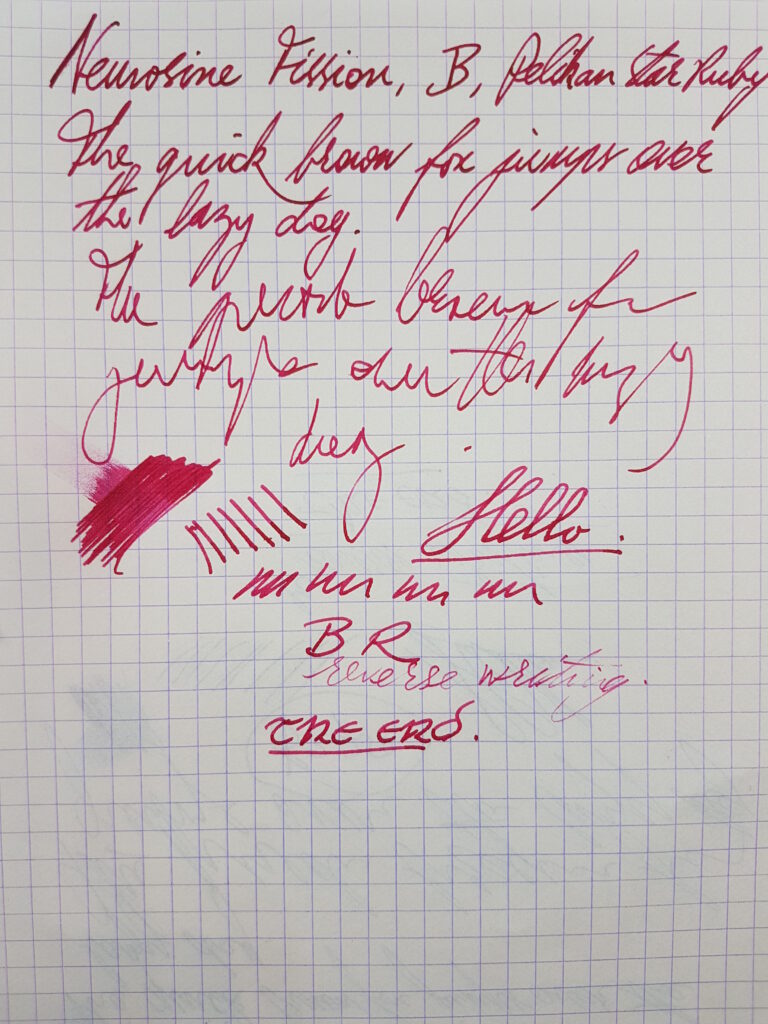 Neurosine Fission, B, Pelikan Star Ruby
The quick brown fox jumps over
the lazy dog.
The quick brown fox
jumps over the lazy
dog.
Hello.
B R
reverse writing.
THE END.